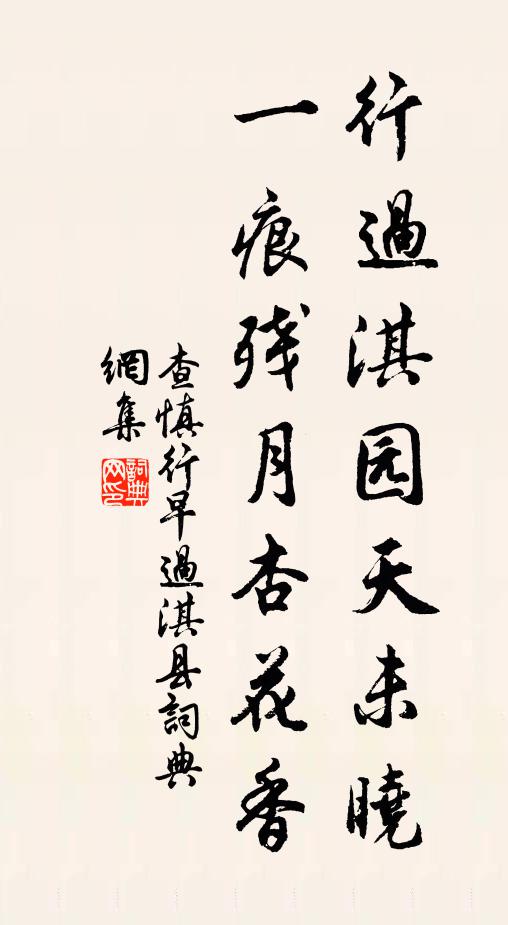 行過淇园天未曉
一痕残月杏花香
查慎行早過淇县詞典
網集
詞典
网印